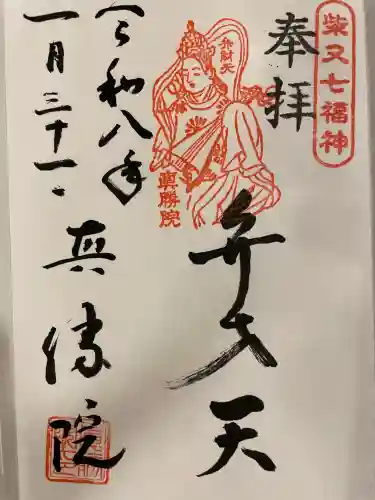 柴又七福神
奉拝
弁財天
真勝院
弁才天
令和八年
一月三十一日
真勝院